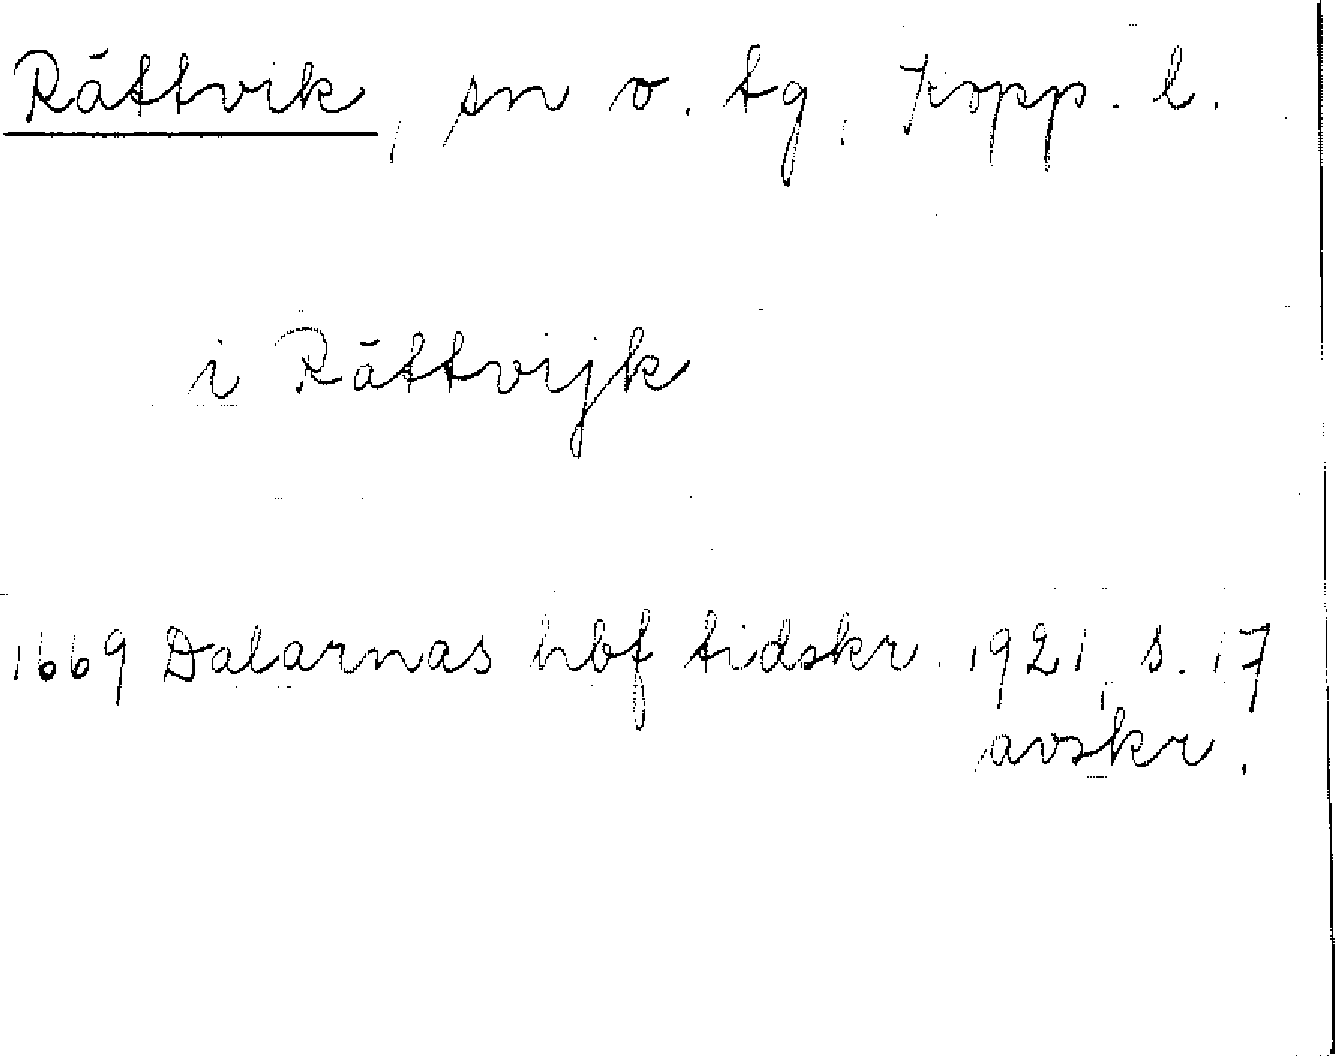 Rättvik, sn o. tg, Kopp. l.
i Rättvijk
1669 Dalarnas hbf tidskr. 1921, s. 17
avskr.